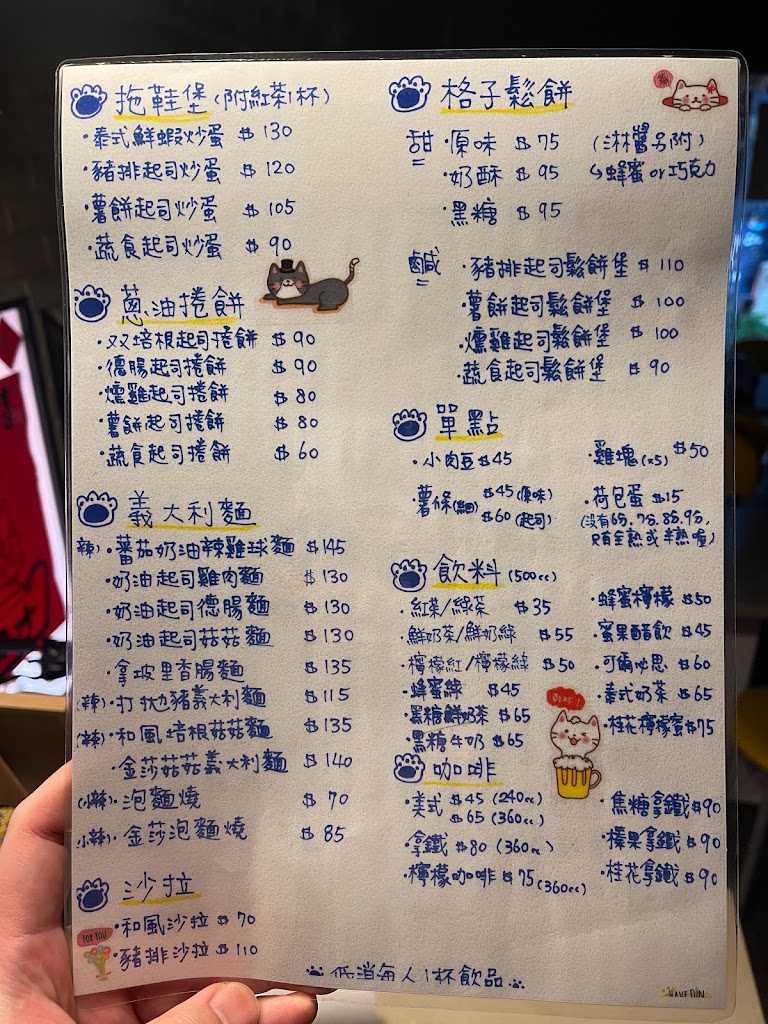 拖鞋堡(附紅茶1杯)
·泰式鮮蝦炒蛋 $130
·豬排起司炒蛋 $120
·薯餅起司炒蛋 $105
·蔬食起司炒蛋 $90
蔥油捲餅
·双培根起司捲餅 $90
·德腸起司捲餅 $90
·燻雞起司捲餅 $80
·薯餅起司捲餅 $80
·蔬食起司捲餅 $60
義大利麵
辣)·蕃茄奶油辣雞球麵 $145
·奶油起司雞肉麵 $130
·奶油起司德腸麵 $130
·奶油起司菇菇麵 $130
·拿坡里香腸麵 $135
(辣)·打拋豬義大利麵 $115
(辣)·和風培根菇菇麵 $135
·金莎菇菇義大利麵 $140
(小辣)·泡麵燒 $70
小辣)·金莎泡麵燒 $85
沙拉
·和風沙拉 $70
·豬排沙拉 $110
FOR YOU
格子鬆餅
甜 ·原味 $75 (淋醬另附)
·奶酥 $95 ↳蜂蜜or巧克力
·黑糖 $95
鹹 ·豬排起司鬆餅堡 $110
·薯餅起司鬆餅堡 $100
·燻雞起司鬆餅堡 $100
·蔬食起司鬆餅堡 $90
單點
·小肉豆 $45
·雞塊(x5) $50
·薯條(細) $45(原味)
$60(起司)
·荷包蛋 $15
(沒有6分,7分,8分,9分,
只有全熟或半熟喔)
飲料(500cc)
·紅茶/綠茶 $35
·鮮奶茶/鮮奶綠 $55
·檸檬紅/檸檬綠 $50
·蜂蜜綠 $45
·黑糖鮮奶茶 $65
·黑糖牛奶 $65
·蜂蜜檸檬 $50
·蜜果醋飲 $45
·可爾必思 $60
·泰式奶茶 $65
·桂花檸檬蜜 $75
乾杯!
咖啡
·美式 $45(240cc)
$65(360cc)
·拿鐵 $80(360cc)
·檸檬咖啡 $75(360cc)
·焦糖拿鐵 $90
·榛果拿鐵 $90
·桂花拿鐵 $90
低消每人1杯飲品
HAVE FUN